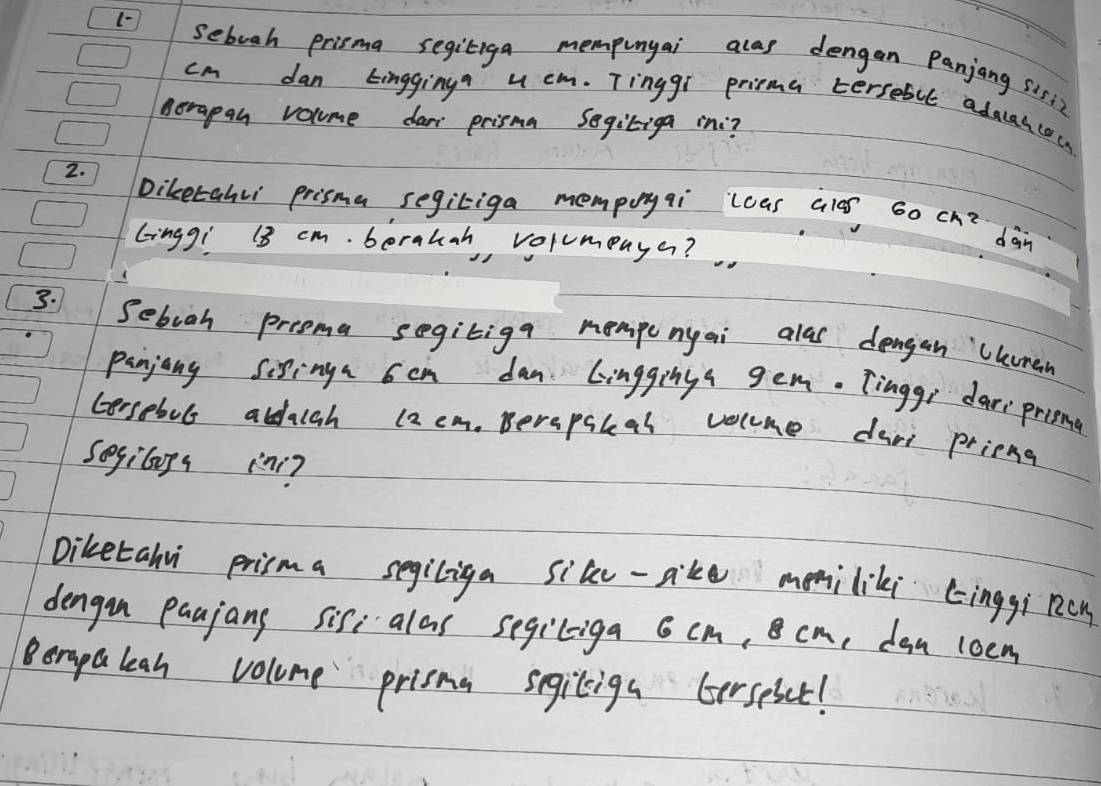 1. Sebuah prisma segitiga mempunyai alas dengan Panjang sisi 2
cm dan tingginya 4 cm. Tinggi prisma tersebut adalah 10 cm.
Berapah volume dari prisma segitiga ini?
2. Diketahui prisma segitiga mempunyai luas alas 60 cm² dan
tinggi 13 cm. berakah volumenya?
3. Sebuah prisma segitiga mempunyai alas dengan Ukuran
Panjang sisinya 6 cm dan tingginya 9 cm. Tinggi dari prisma
tersebut adalah 12 cm. Berapakah volume dari prisma
segitiga ini?
Diketahui prisma segitiga siku-siku memiliki tinggi 12 cm
dengan panjang sisi alas segitiga 6 cm, 8 cm, dan 10 cm
Berapakah volume prisma segitiga tersebut!